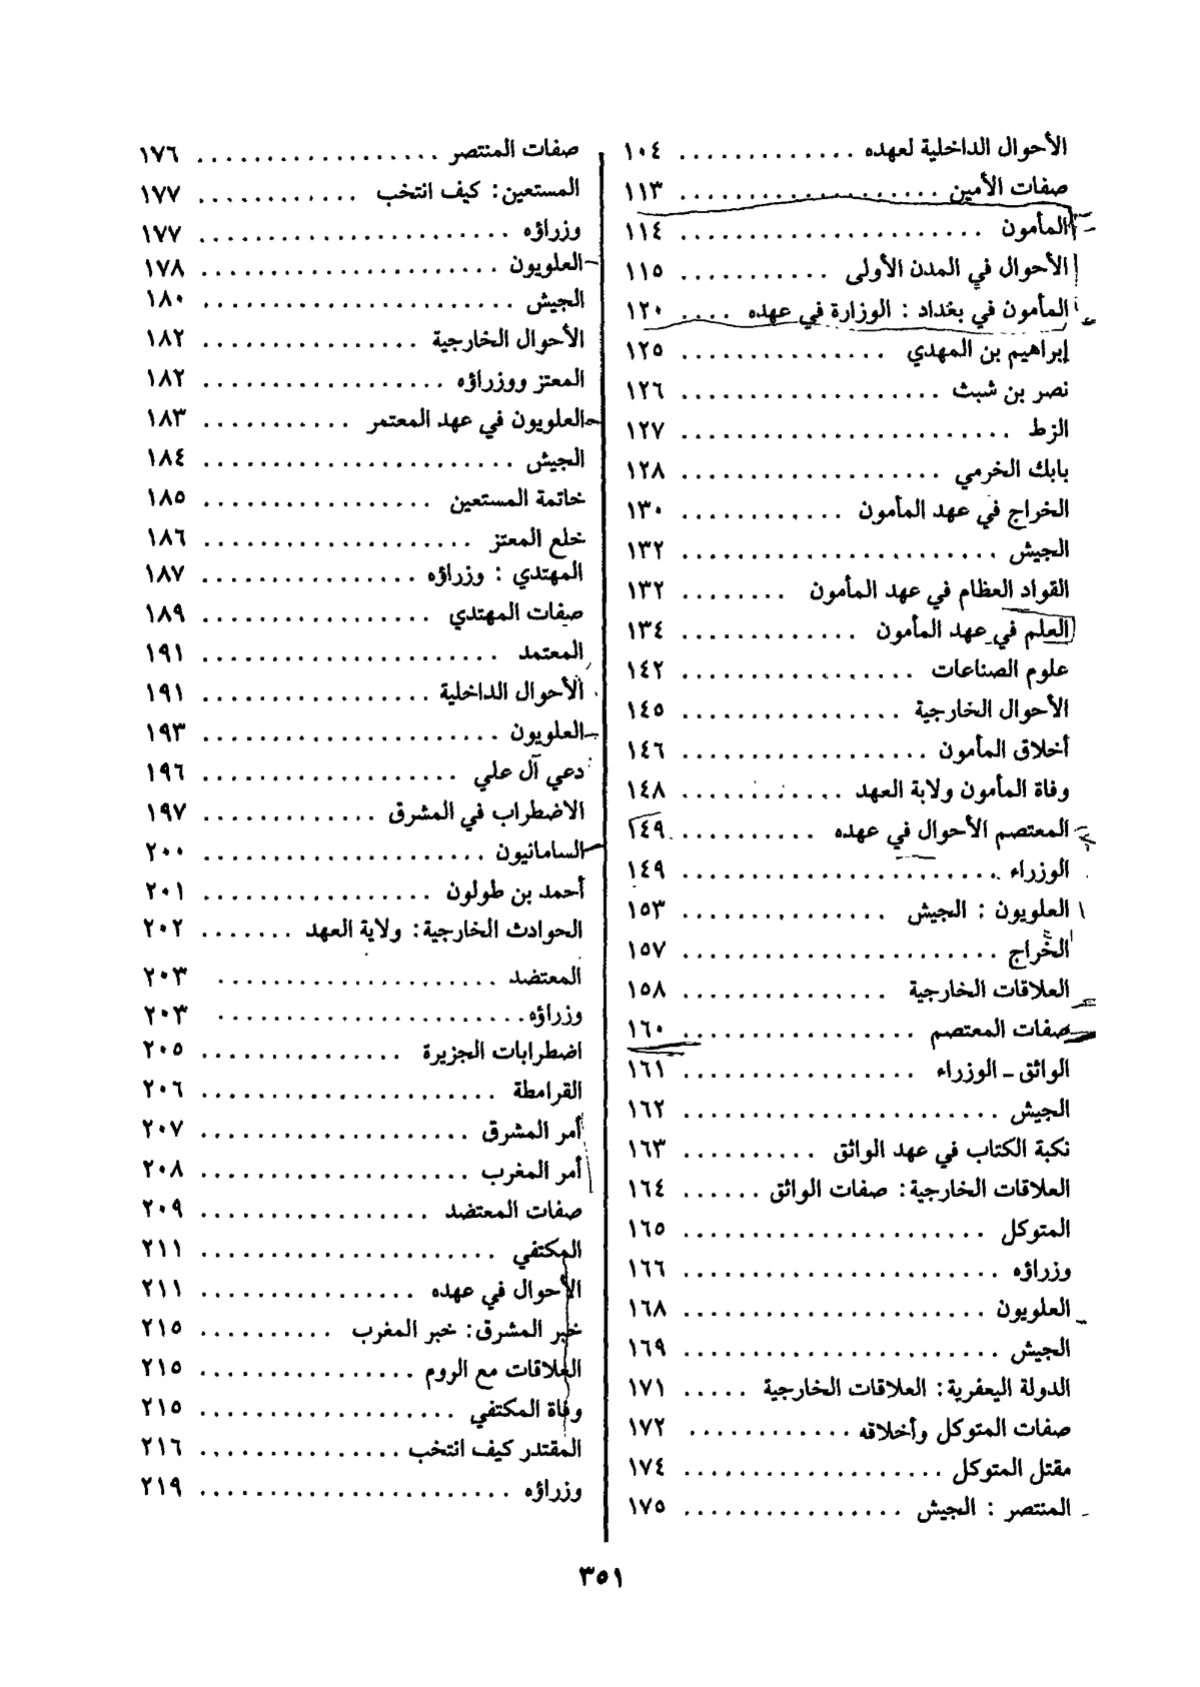 الأحوال الداخلية لعهده ............. ١٠٤
صفات الأمين ................... ١١٣
المأمون ...................... ١١٤
الأحوال في المدن الأولى ........... ١١٥
المأمون في بغداد : الوزارة في عهده .... ١٢٠
إبراهيم بن المهدي ............... ١٢٥
نصر بن شبث ................... ١٢٦
الزط ........................ ١٢٧
بابك الخرمي ................... ١٢٨
الخراج في عهد المأمون ............ ١٣٠
الجيش ....................... ١٣٢
القواد العظام في عهد المأمون ........ ١٣٢
العلم في عهد المأمون ............. ١٣٤
علوم الصناعات ................. ١٤٢
الأحوال الخارجية ................ ١٤٥
أخلاق المأمون .................. ١٤٦
وفاة المأمون ولاية العهد ............ ١٤٨
المعتصم الأحوال في عهده .......... ١٤٩
الوزراء ....................... ١٤٩
العلويون : الجيش ............... ١٥٣
الخراج ....................... ١٥٧
العلاقات الخارجية ............... ١٥٨
صفات المعتصم ................. ١٦٠
الواثق ـ الوزراء ................. ١٦١
الجيش ....................... ١٦٢
نكبة الكتاب في عهد الواثق .......... ١٦٣
العلاقات الخارجية: صفات الواثق ...... ١٦٤
المتوكل ...................... ١٦٥
وزراؤه ....................... ١٦٦
العلويون ...................... ١٦٨
الجيش ....................... ١٦٩
الدولة اليعفرية: العلاقات الخارجية ..... ١٧١
صفات المتوكل وأخلاقه ............ ١٧٢
مقتل المتوكل ................... ١٧٤
المنتصر : الجيش ................ ١٧٥
صفات المنتصر .................. ١٧٦
المستعين: كيف انتخب ............ ١٧٧
وزراؤه ....................... ١٧٧
العلويون ...................... ١٧٨
الجيش ....................... ١٨٠
الأحوال الخارجية ................ ١٨٢
المعتز ووزراؤه .................. ١٨٢
العلويون في عهد المعتمر ........... ١٨٣
الجيش ....................... ١٨٤
خاتمة المستعين ................. ١٨٥
خلع المعتز .................... ١٨٦
المهتدي : وزراؤه ................ ١٨٧
صفات المهتدي ................. ١٨٩
المعتمد ...................... ١٩١
الأحوال الداخلية ................ ١٩١
العلويون ...................... ١٩٣
دعي آل علي ................... ١٩٦
الاضطراب في المشرق ............. ١٩٧
السامانيون ..................... ٢٠٠
أحمد بن طولون ................. ٢٠١
الحوادث الخارجية: ولاية العهد ....... ٢٠٢
المعتضد ..................... ٢٠٣
وزراؤه ....................... ٢٠٣
اضطرابات الجزيرة ............... ٢٠٥
القرامطة ...................... ٢٠٦
أمر المشرق .................... ٢٠٧
أمر المغرب .................... ٢٠٨
صفات المعتضد ................. ٢٠٩
المكتفي ...................... ٢١١
الأحوال في عهده ................ ٢١١
خبر المشرق: خبر المغرب .......... ٢١٥
العلاقات مع الروم ................ ٢١٥
وفاة المكتفي ................... ٢١٥
المقتدر كيف انتخب ............... ٢١٦
وزراؤه ....................... ٢١٩
٣٥١